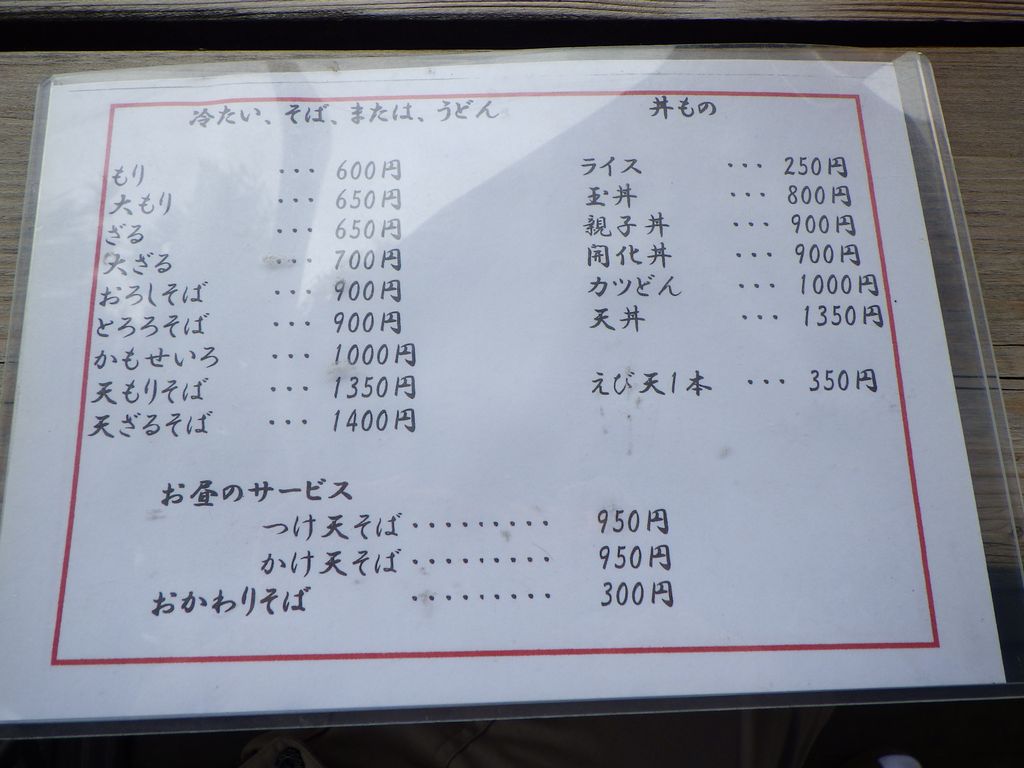 冷たい、そば、または、うどん
もり ・・・ 600円
大もり ・・・ 650円
ざる ・・・ 650円
大ざる ・・・ 700円
おろしそば ・・・ 900円
とろろそば ・・・ 900円
かもせいろ ・・・ 1000円
天もりそば ・・・ 1350円
天ざるそば ・・・ 1400円
丼もの
ライス ・・・ 250円
玉丼 ・・・ 800円
親子丼 ・・・ 900円
開化丼 ・・・ 900円
カツどん ・・・ 1000円
天丼 ・・・ 1350円
えび天1本 ・・・ 350円
お昼のサービス
つけ天そば ・・・・・・・・・ 950円
かけ天そば ・・・・・・・・・ 950円
おかわりそば ・・・・・・・・・ 300円